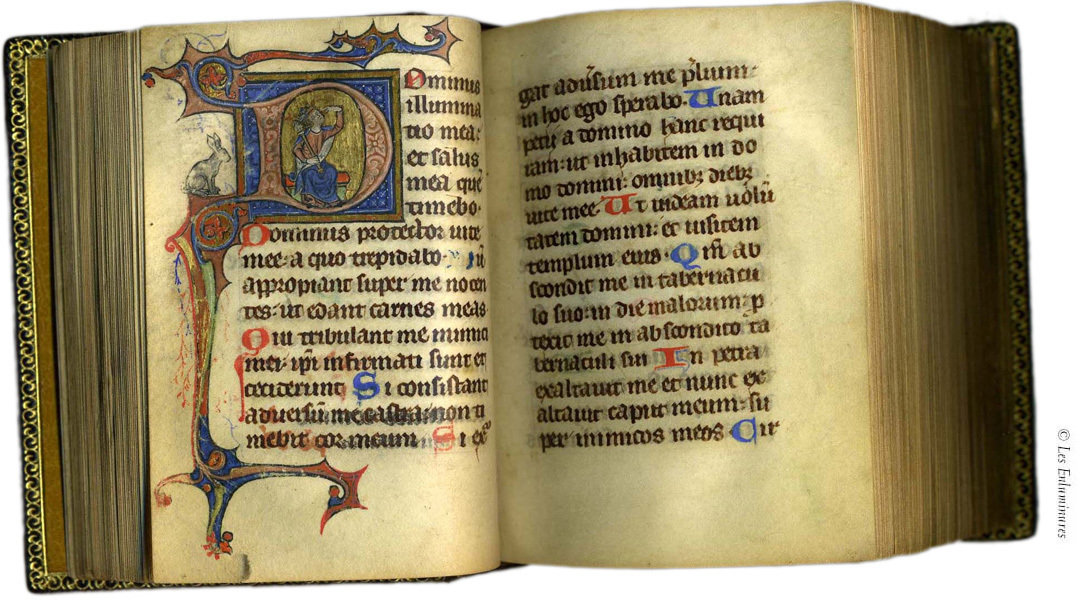 Dominus
illumina
tio mea:
et salus
mea que
timebo.
Dominus protector uite
mee: a quo trepidabo.
appropiant super me nocen
tes: ut edant carnes meas
Qui tribulant me inimici
mei: ipi infirmati sunt et
ceciderunt Si consistant
aduersū me castra: non ti
mebit cor meum Si ex
gat adūsum me plium
in hoc ego sperabo. Unam
petii a domino hanc requi
ram: ut inhabitem in do
mo domini: omnibꝫ diebꝫ
uite mee. Ut uideam uolū
tatem domini: et uisitem
templum eius. Qm̄ ab
scondit me in tabernacu
lo suo: in die malorum: p
texit me in abscondito ta
bernaculi sui In petra
exaltauit me et nunc ex
altauit caput meum: su
per inimicos meos Cir
© Les Enluminures